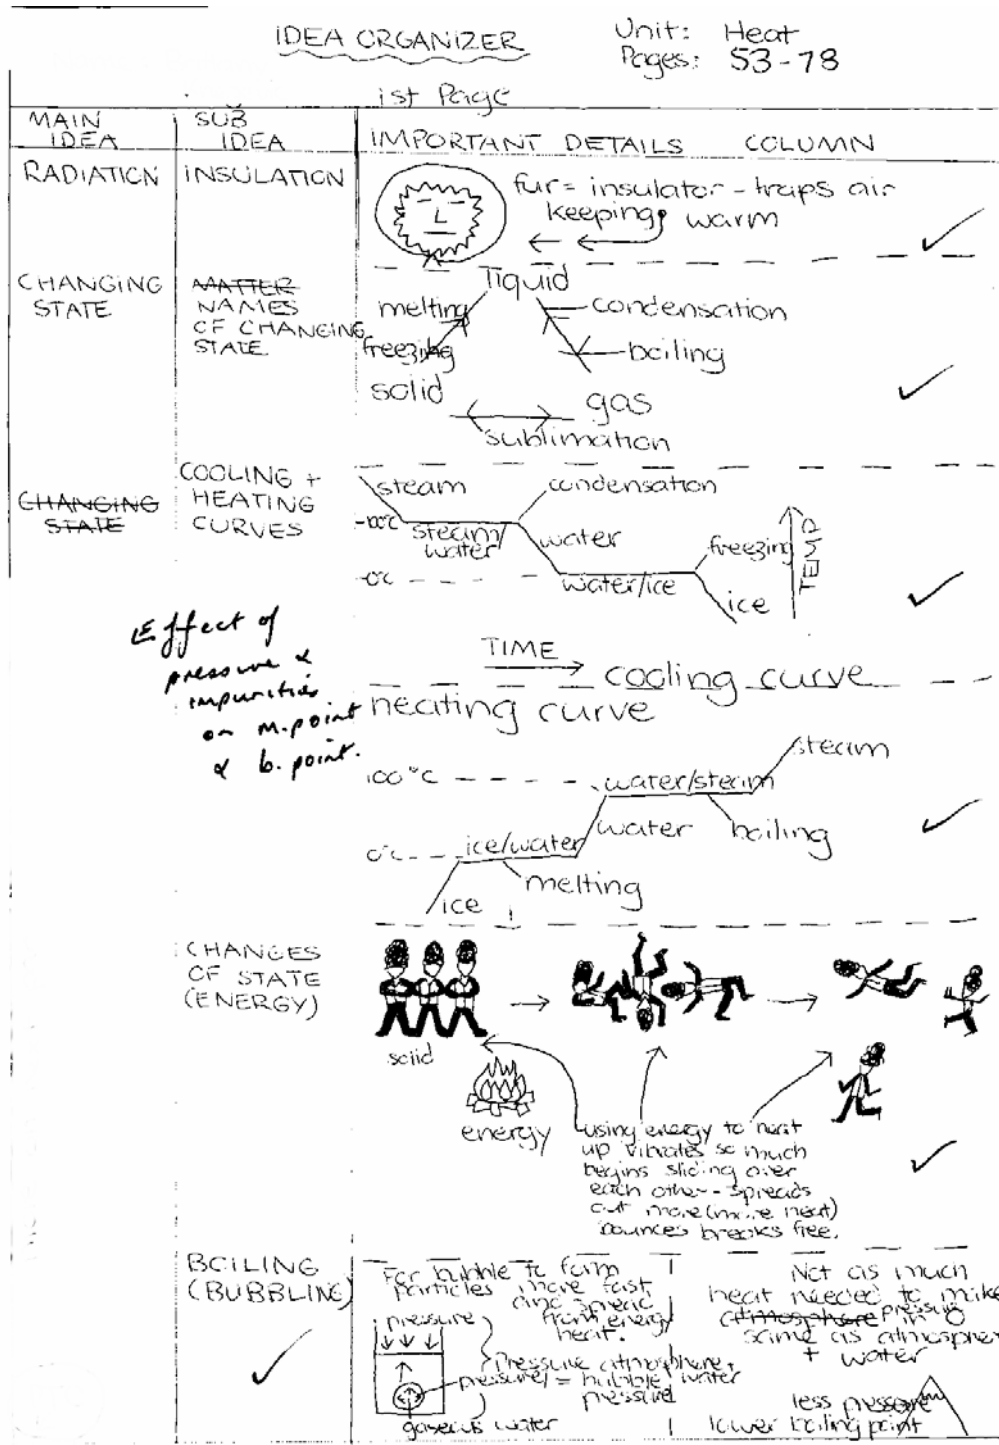 IDEA ORGANIZER
Unit: Heat
Pages: 53-78
1st Page
MAIN IDEA
SUB IDEA
IMPORTANT DETAILS COLUMN
RADIATION
INSULATION
fur = insulator - traps air
keeping warm
CHANGING
STATE
MATTER
NAMES
OF CHANGING
STATE
liquid
melting
condensation
freezing
boiling
solid
gas
sublimation
CHANGING
STATE
COOLING +
HEATING
CURVES
steam
condensation
100°C
steam/
water
water
freezing
TEMP
0°C
water/ice
ice
TIME
cooling curve
Effect of
pressure &
impurities
on m.point
& b.point.
heating curve
steam
100°C
water/steam
water
boiling
0°C
ice/water
melting
ice
CHANGES
OF STATE
(ENERGY)
solid
energy
using energy to heat
up vibrates so much
begins sliding over
each other - spreads
out more (more heat)
bounces breaks free.
BOILING
(BUBBLING)
For bubble to form
particles move fast
and
from energy
heat.
pressure
Pressure atmosphere +
pressure = bubble water
pressure
gaseous water
Not as much
heat needed to make
atmosphere pressure in O
same as atmospher
+ water
less pressure
lower boiling point